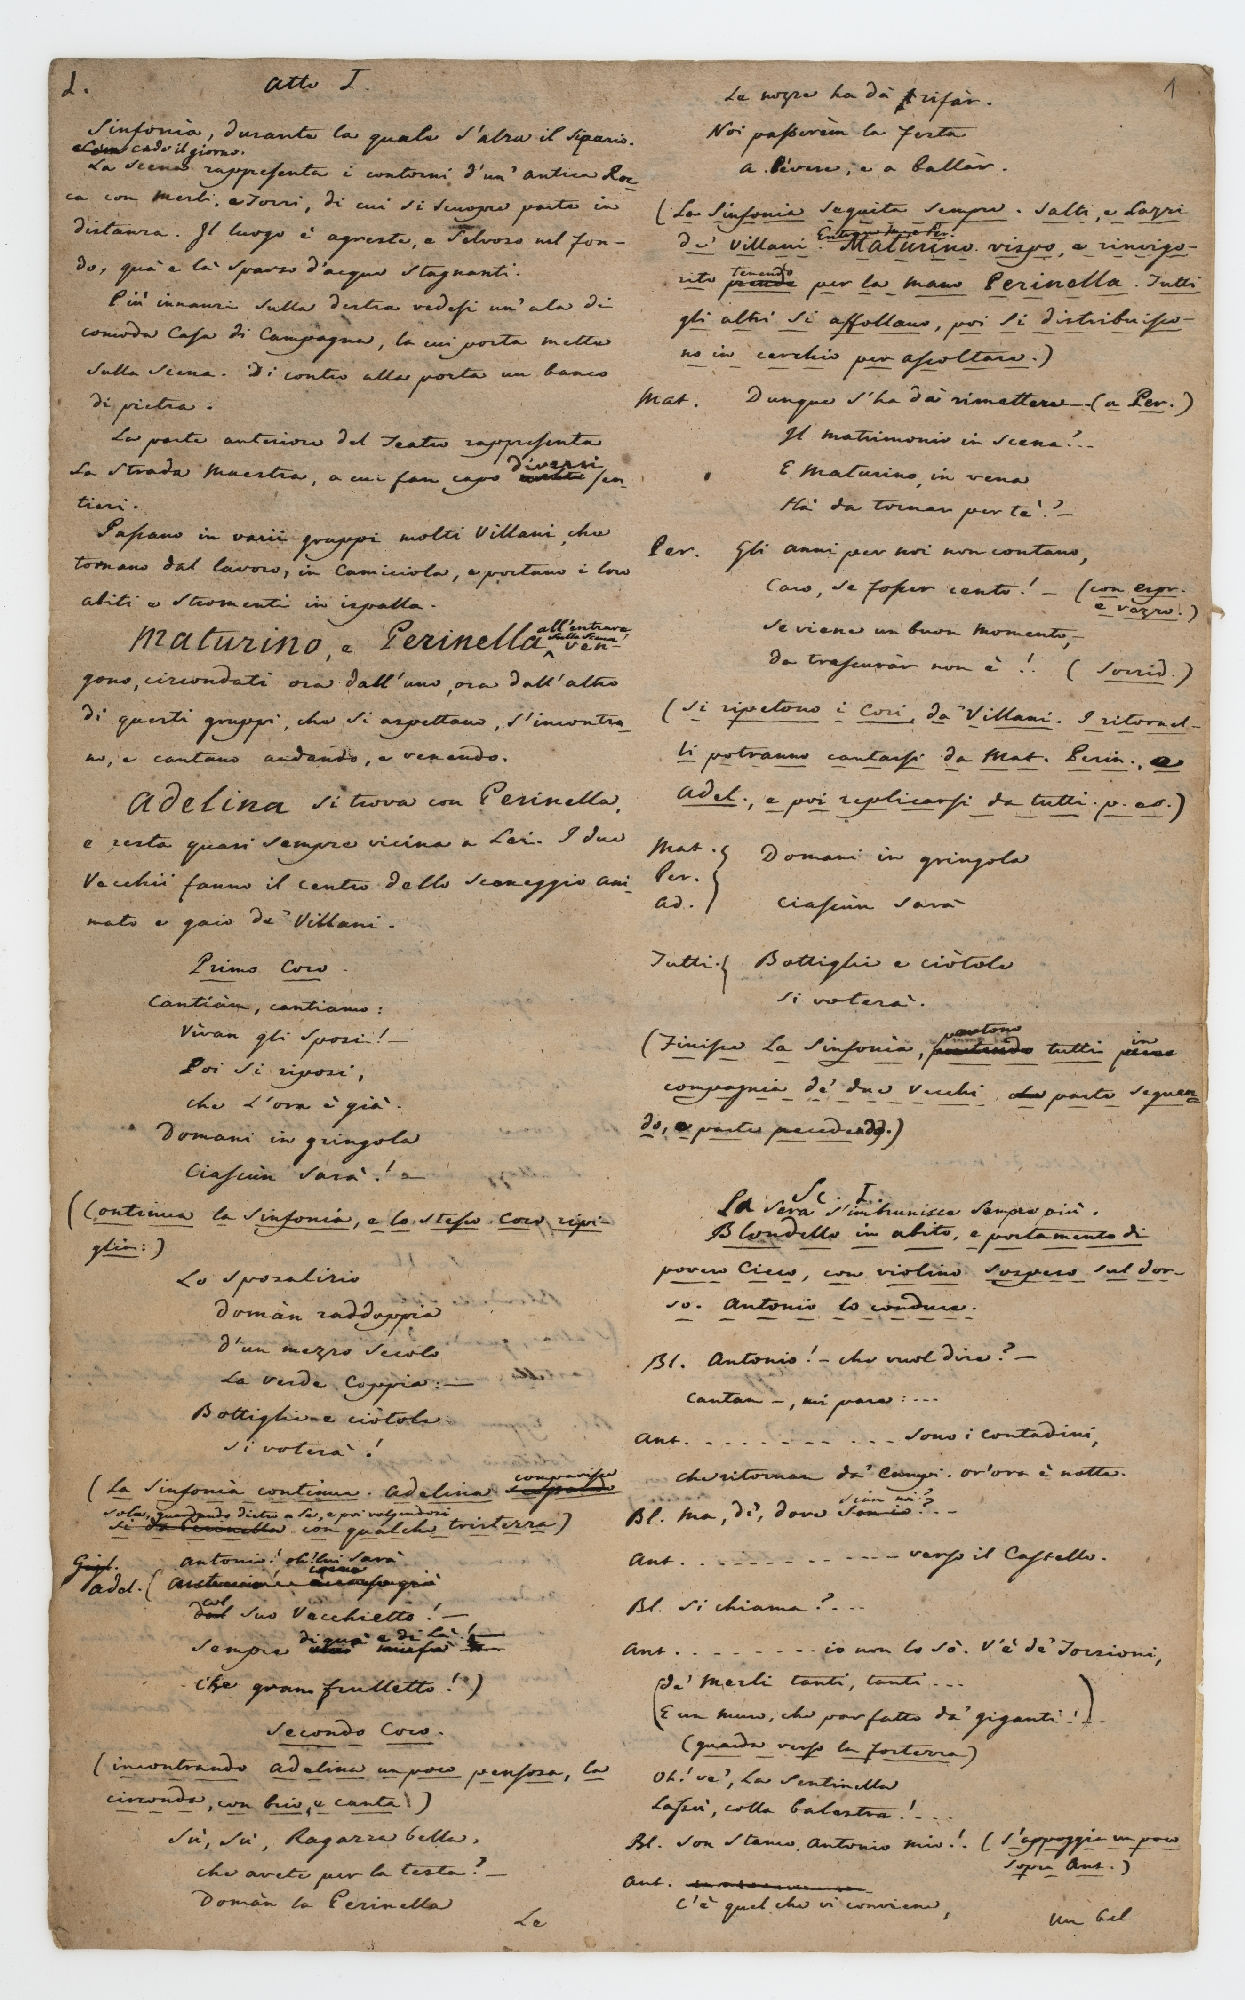 1.
Atto I.
Sinfonia, durante la quale s'alza il Sipario.
cade il giorno.
La Scena rappresenta i contorni d'un' antica Roc-
ca con Merli, e Torri, di cui si scuopre parte in
distanza. Il luogo è agreste, e selvoso nel fon-
do, quà e là sparso d'acque stagnanti.
Più innanzi sulla destra vedesi un'ala di
comoda Casa di Campagna, la cui porta mette
sulla Scena. Di contro alla porta un banco
di pietra.
La parte anteriore del Teatro rappresenta
la strada maestra, a cui fan capo diversi sen-
tieri.
Passano in varii gruppi molti Villani, che
tornano dal lavoro, in Camiciola, e portano i loro
abiti e stromenti in ispalla.
Maturino, e Perinella all'entrare sulla Scena ven-
gono, circondati ora dall'uno, ora dall'altro
di questi gruppi, che si aspettano, s'incontra
no, e cantano andando, e venendo.
Adelina si trova con Perinella,
e resta quasi sempre vicina a Lei. I due
Vecchii fanno il centro dello sceneggio ani-
mato e gaio de' Villani.
Primo Coro.
Cantiàm, cantiamo:
Vivan gli sposi! —
Poi si riposi,
che l'ora è già.
Domani in gringola
Ciascùn sarà! —
(Continua la Sinfonia, e lo stesso Coro ripi-
glia:)
Lo sposalizio
Domàn raddoppia
D'un mezzo secolo
La verde Coppia: —
Bottiglie e ciòtole
si voterà!
(La Sinfonia continua. Adelina comparisce
sola, guardando dietro a sè, e poi volgendosi
con qualche tristezza)
Adel. (Antonio! oh! lui sarà
col suo Vecchietto! —
Sempre di quà e di là! —
che gran frulletto!)
Secondo Coro.
(incontrando Adelina un poco pensosa, la
circonda, con brio, e canta:)
Sù, sù, Ragazza bella,
che avete per la testa? —
Domàn la Perinella
Le
1
Le nozze ha da rifàr.
Noi passerèm la festa
a bévere, e a ballàr.
(La Sinfonia seguita sempre. Salti, e Lazzi
de' Villani. Entrano M. e Per. Maturino vispo, e rinvigo-
rito tenendo per la mano Perinella. Tutti
gli altri si affollano, poi si distribuisco-
no in cerchio per ascoltare.)
Mat. Dunque s'ha da rimettere — (a Per.)
Il matrimonio in scena?..
E Maturino, in vena
Hà da tornar per tè? —
Per. Gli anni per noi non contano,
Caro, se fosser cento! — (con espr.
e vezzo.)
Se viene un buon momento,
da trascuràr non è!. (Sorrid.)
(Si ripetono i Cori, da' Villani. I ritornel-
li potranno cantarsi da Mat. Perin., e
Adel., e poi replicarsi da tutti. p. es.)
Mat.
Per. Domani in gringola
Ad. Ciascùn sarà
Tutti. Bottiglie e ciòtole
si voterà.
(Finisce la Sinfonia, partono tutti in
compagnia de' due Vecchi parte seguen-
do, e parte precedendo.)
Sc. I.
La sera s'imbrunisce sempre più.
Blondello in abito, e portamento di
povero Cieco, con violino sospeso sul dor-
so. Antonio lo conduce.
Bl. Antonio! — che vuol dire? —
Cantan —, mi pare: ...
Ant. . . . . . . . . . . . Sono i Contadini,
che ritornan da' Campi. or'ora è notte.
Bl. Ma, dì, dove siam noi? ..
Ant. . . . . . . . . . . . verso il Castello.
Bl. Si chiama? ...
Ant. . . . . . . . . io non lo sò. V'è de' Torrioni,
(de' Merli tanti, tanti ...
E un muro, che par fatto da' giganti!)
(guarda verso la fortezza)
Oh! ve', la sentinella
Lassù, colla balestra! ...
Bl. Son stanco, Antonio mio!. (s'appoggia un poco
sopra Ant.)
Ant.
C'è quel che vi conviene,
Un bel